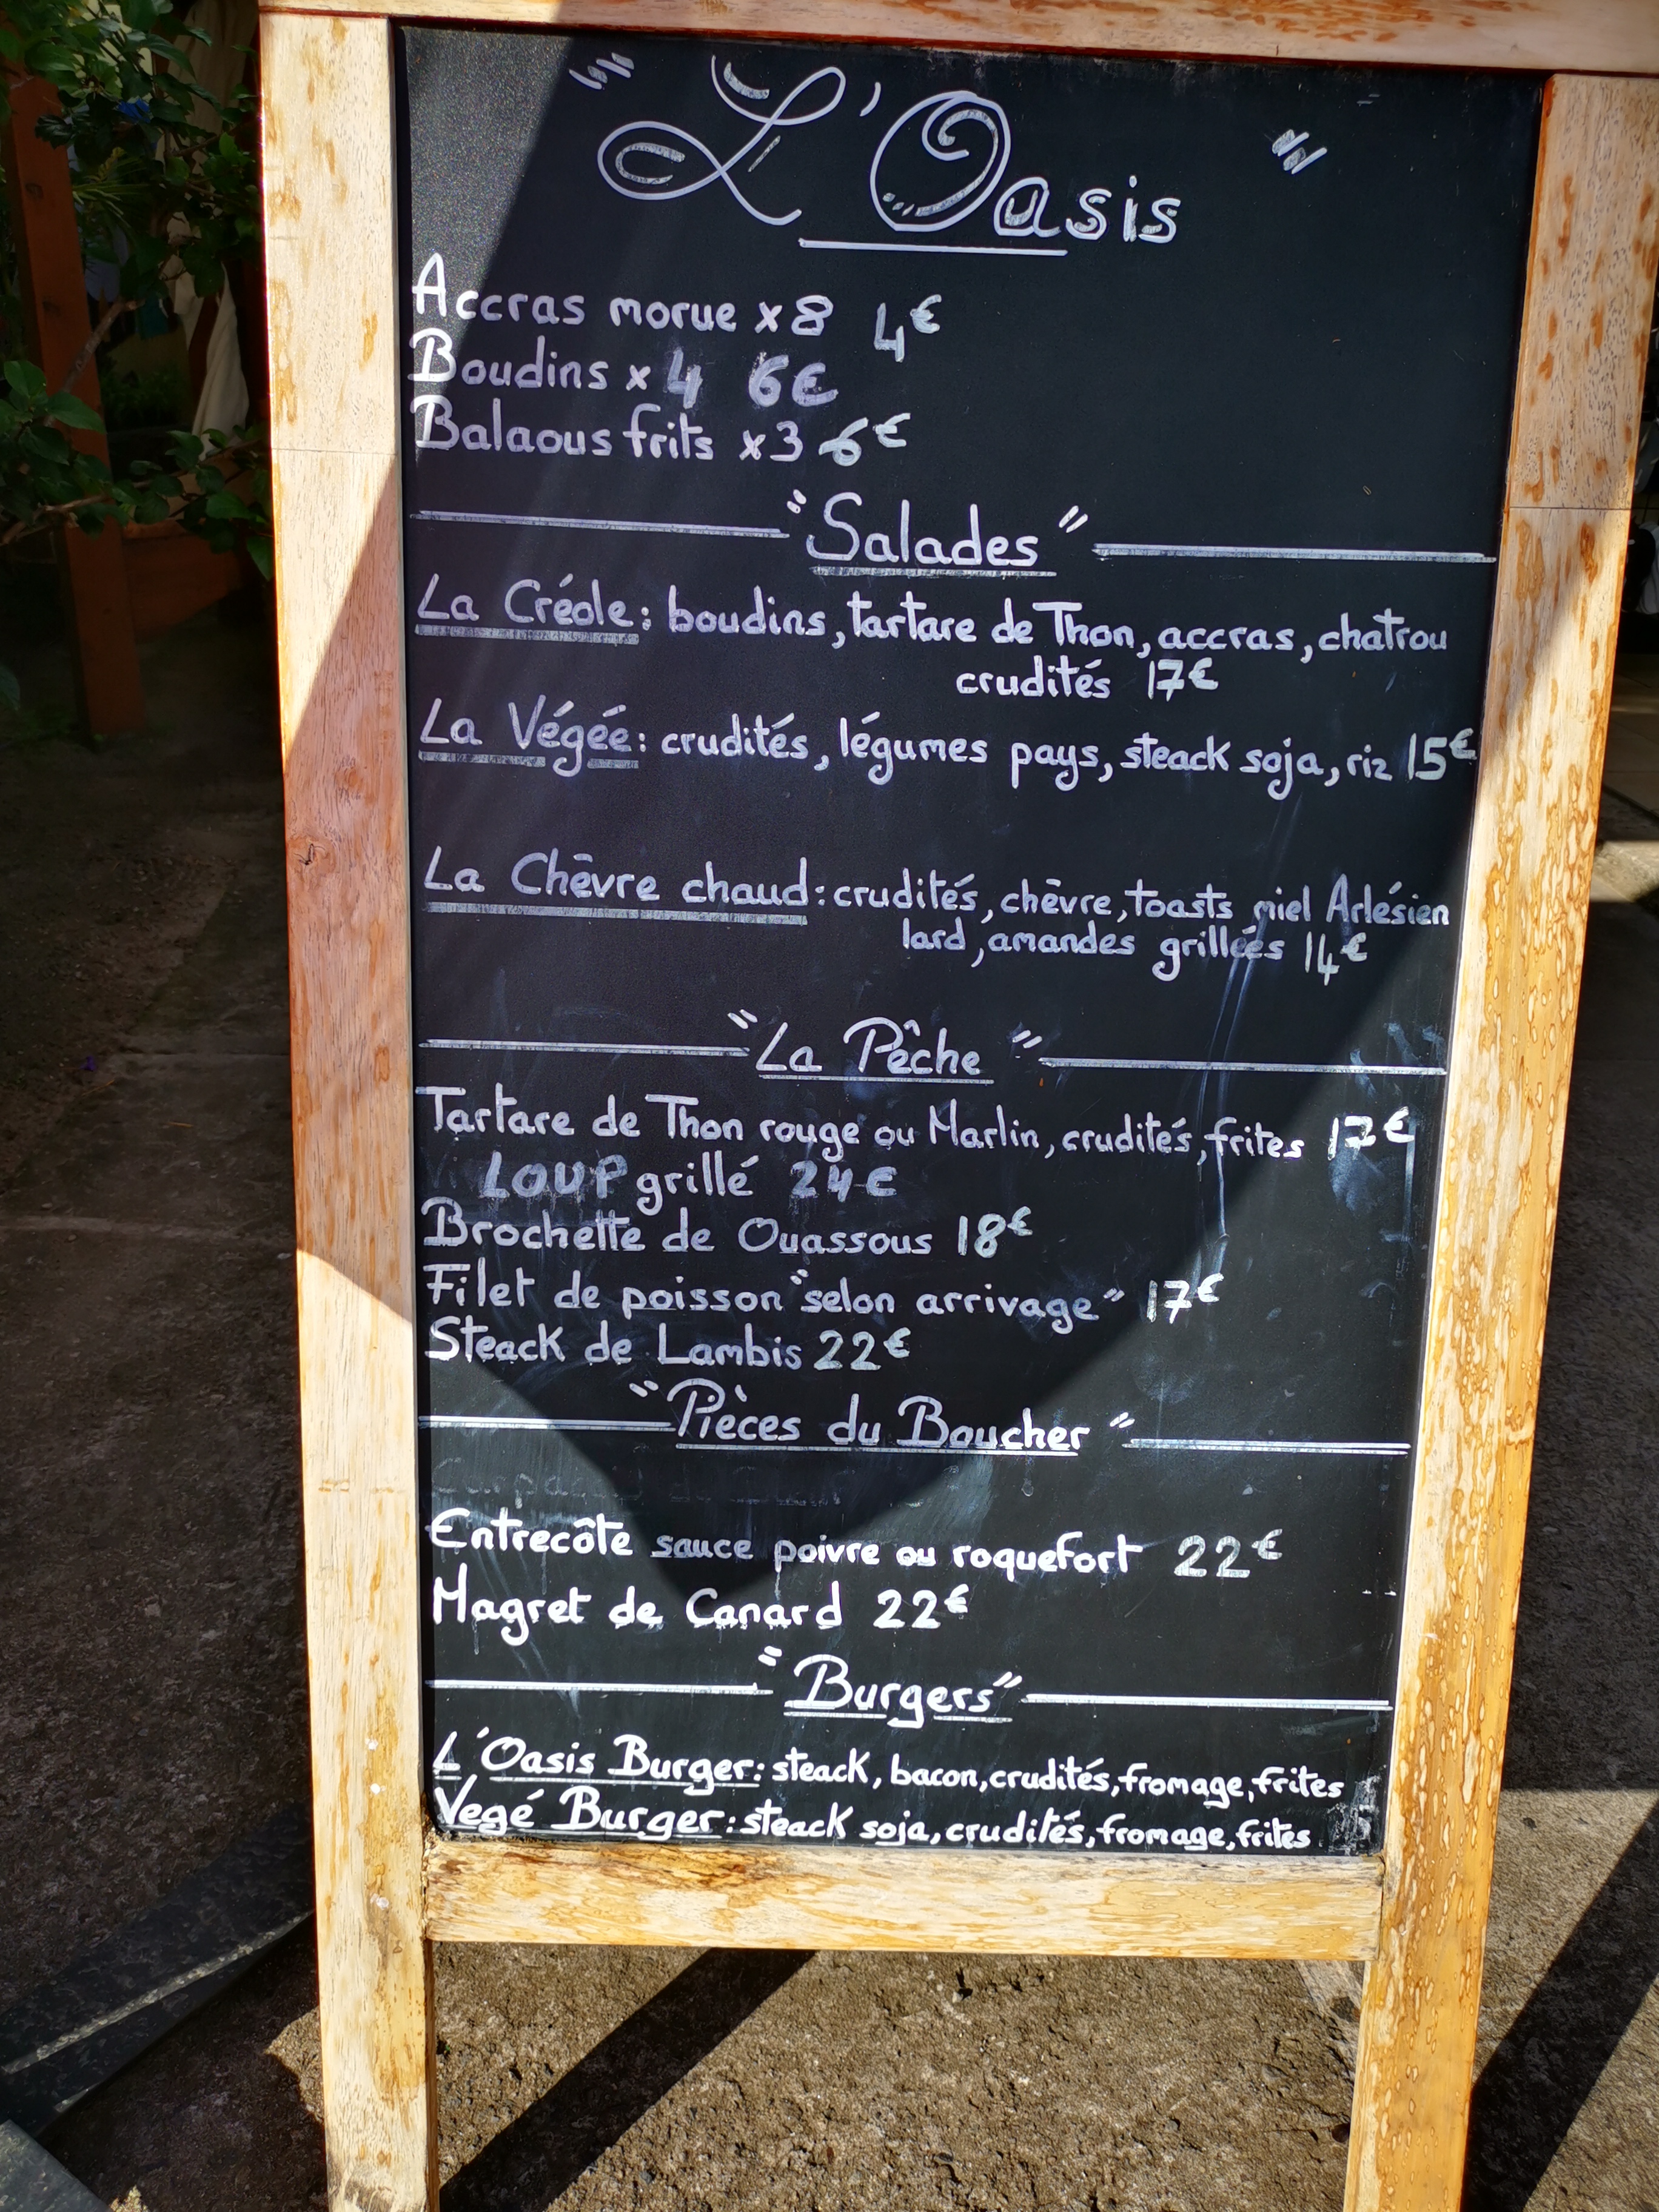 "L'Oasis"
Accras morue x8 4€
Boudins x4 6€
Balaous frits x3 6€
"Salades"
La Créole: boudins, tartare de Thon, accras, chatrou
crudités 17€
La Végée: crudités, légumes pays, steack soja, riz 15€
La Chèvre chaud: crudités, chèvre, toasts miel Arlésien
lard, amandes grillées 14€
"La Pêche"
Tartare de Thon rouge ou Marlin, crudités, frites 17€
LOUP grillé 24€
Brochette de Ouassous 18€
Filet de poisson "selon arrivage" 17€
Steack de Lambis 22€
"Pièces du Boucher"
Entrecôte sauce poivre ou roquefort 22€
Magret de Canard 22€
"Burgers"
L'Oasis Burger: steack, bacon, crudités, fromage, frites
Vegé Burger: steack soja, crudités, fromage, frites